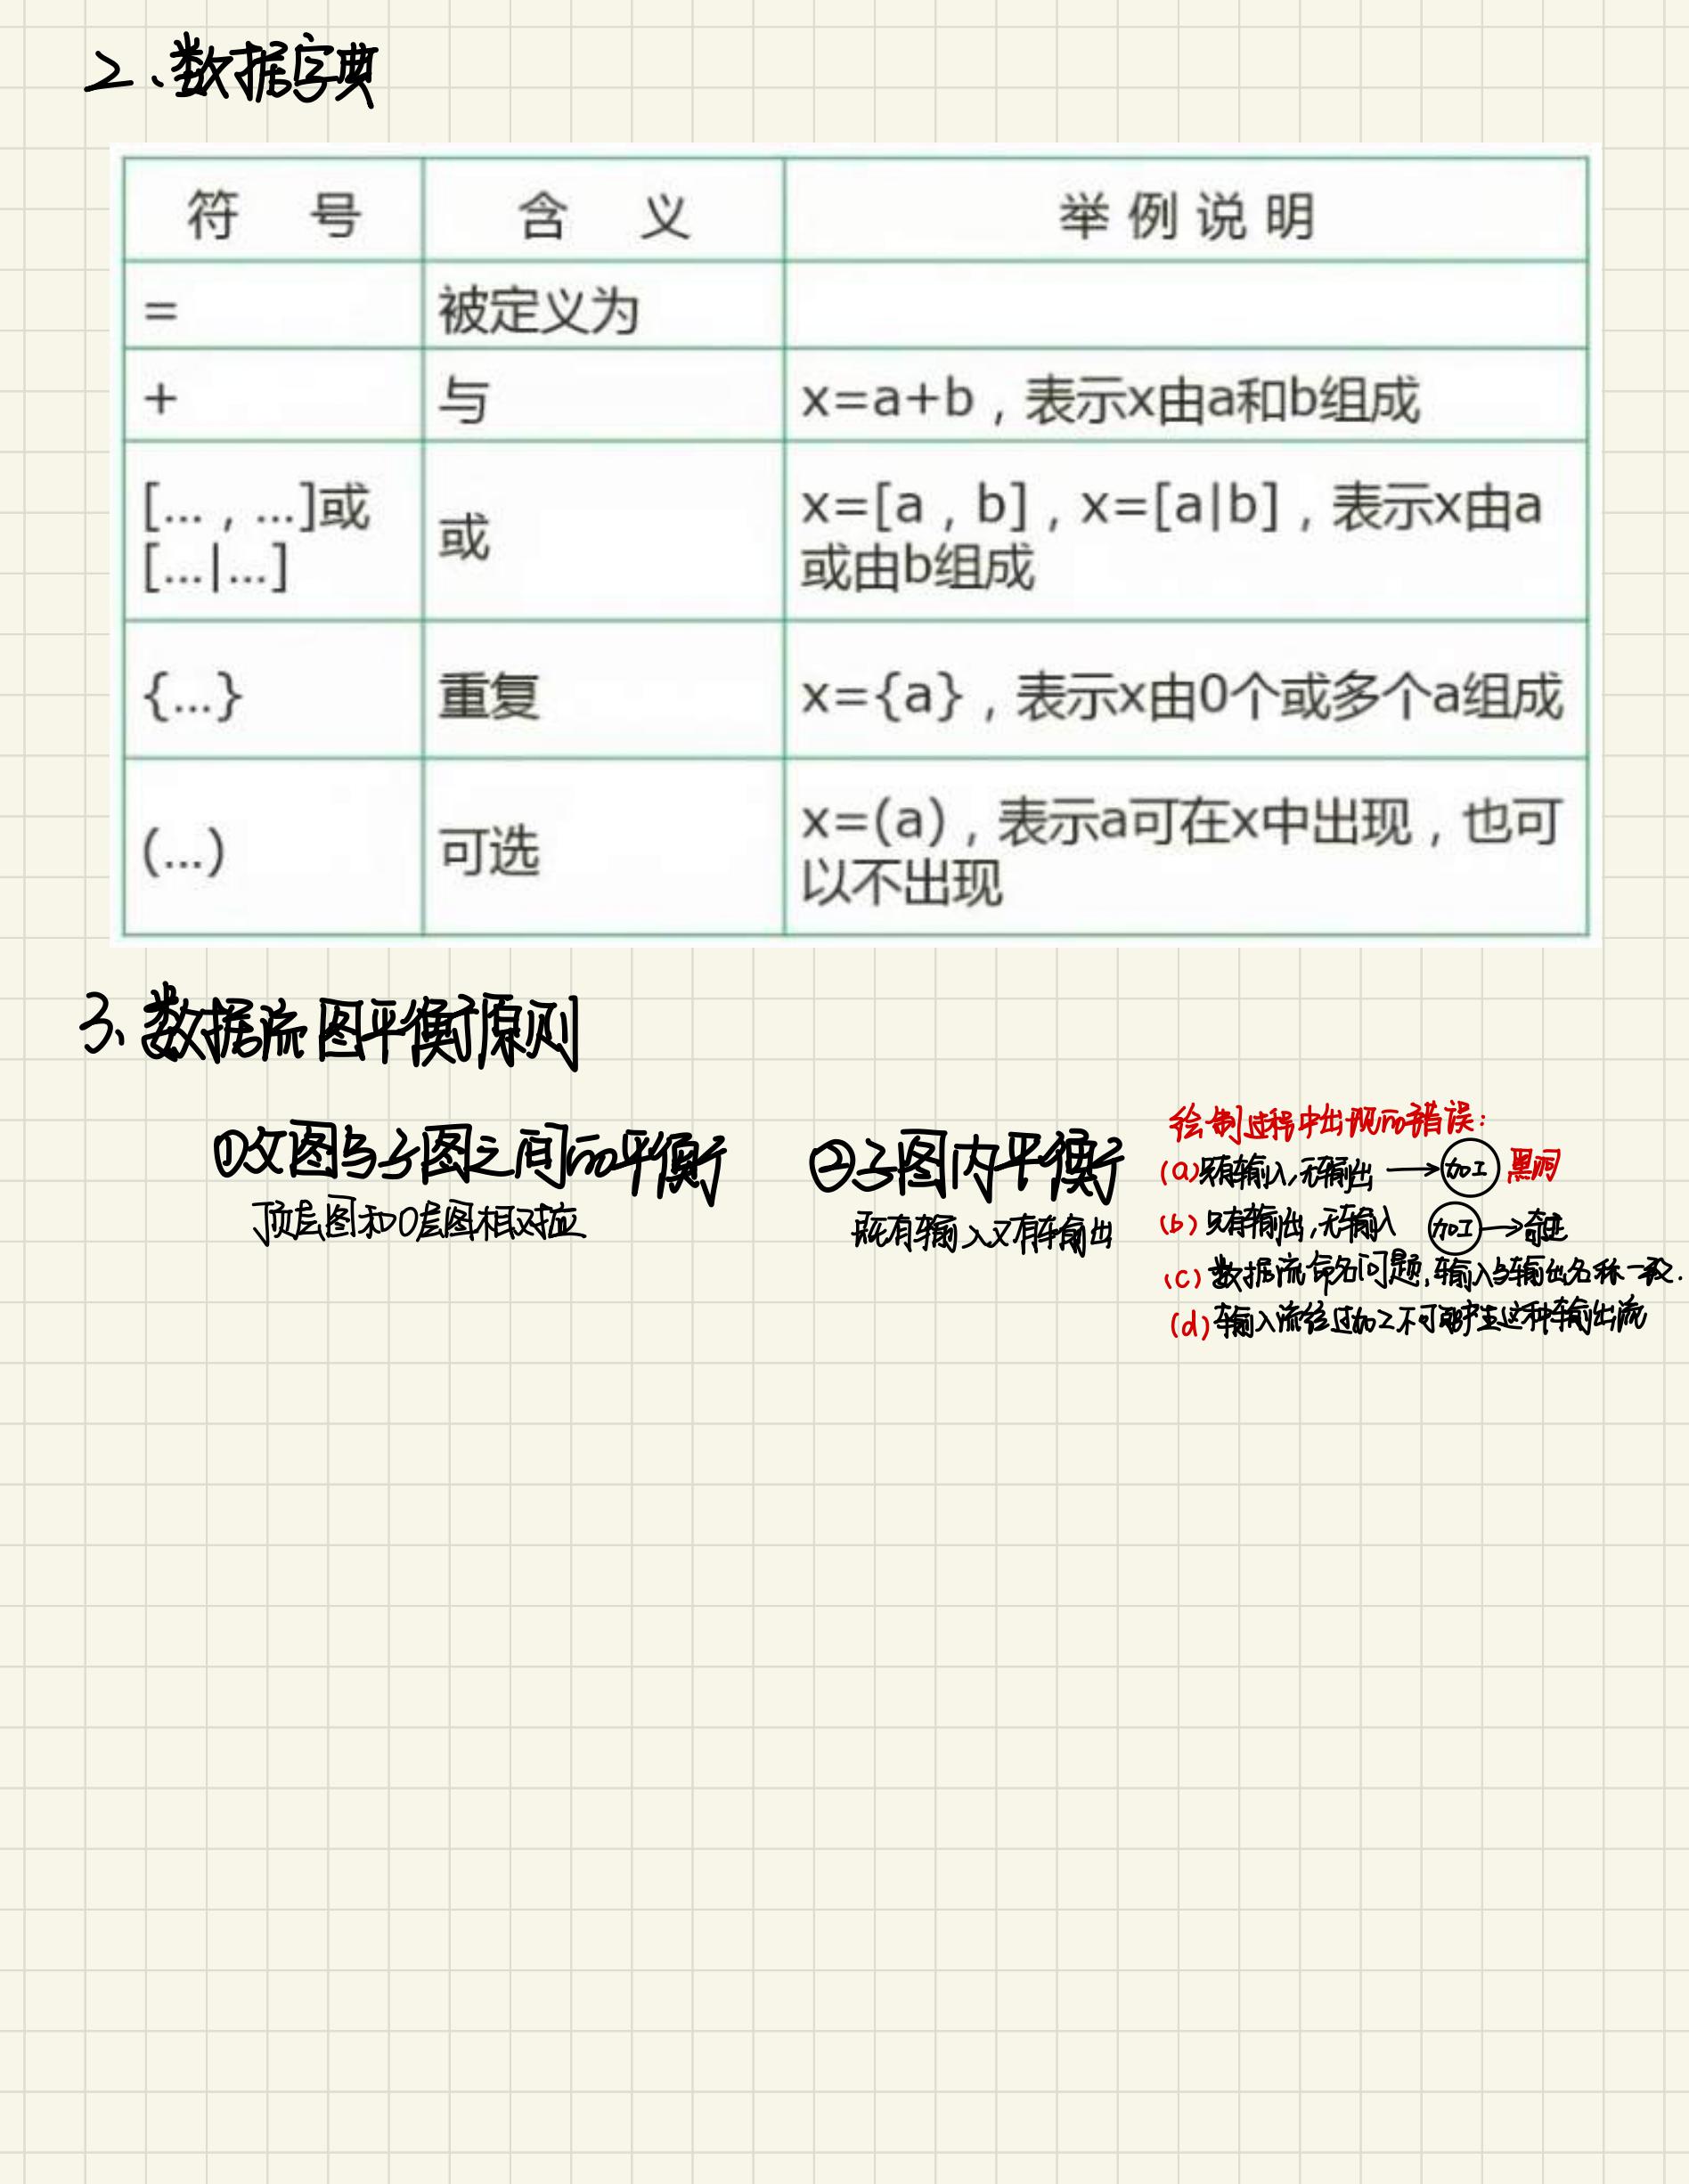 2、数据字典
符 号 含 义 举例说明
= 被定义为
+ 与 x=a+b，表示x由a和b组成
[…，…]或
[…|…]
或
x=[a，b]，x=[a|b]，表示x由a
或由b组成
{…} 重复 x={a}，表示x由0个或多个a组成
(…) 可选
x=(a)，表示a可在x中出现，也可
以不出现
3、数据流图平衡原则
①父图与子图之间的平衡
顶层图和0层图相对应
②子图内平衡
既有输入又有输出
绘制过程中出现的错误：
(a)只有输入，无输出 → 加工 黑洞
(b)只有输出，无输入 加工 → 奇迹
(c)数据流命名问题，输入与输出名称一致.
(d)输入流经过加工不可能产生这种输出流